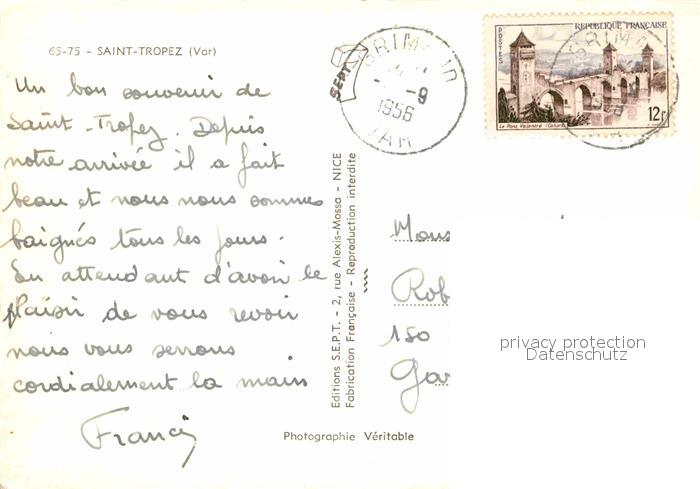 65-75 - SAINT-TROPEZ (Var)
Un bon souvenir de
Saint-Tropez. Depuis
notre arrivée il a fait
beau et nous nous sommes
baignés tous les jours.
En attendant d'avoir le
plaisir de vous revoir
nous vous serrons
cordialement la main
Francis
Editions S.E.P.T. - 2, rue Alexis-Mossa - NICE
Fabrication Française - Reproduction interdite
SEPT
GRIMAUD
-9
1956
VAR
REPUBLIQUE FRANÇAISE
POSTES
12F
Le Pont Valentré (Cahors)
Mons
Rob
150
Gar
privacy protection
Datenschutz
Photographie Véritable